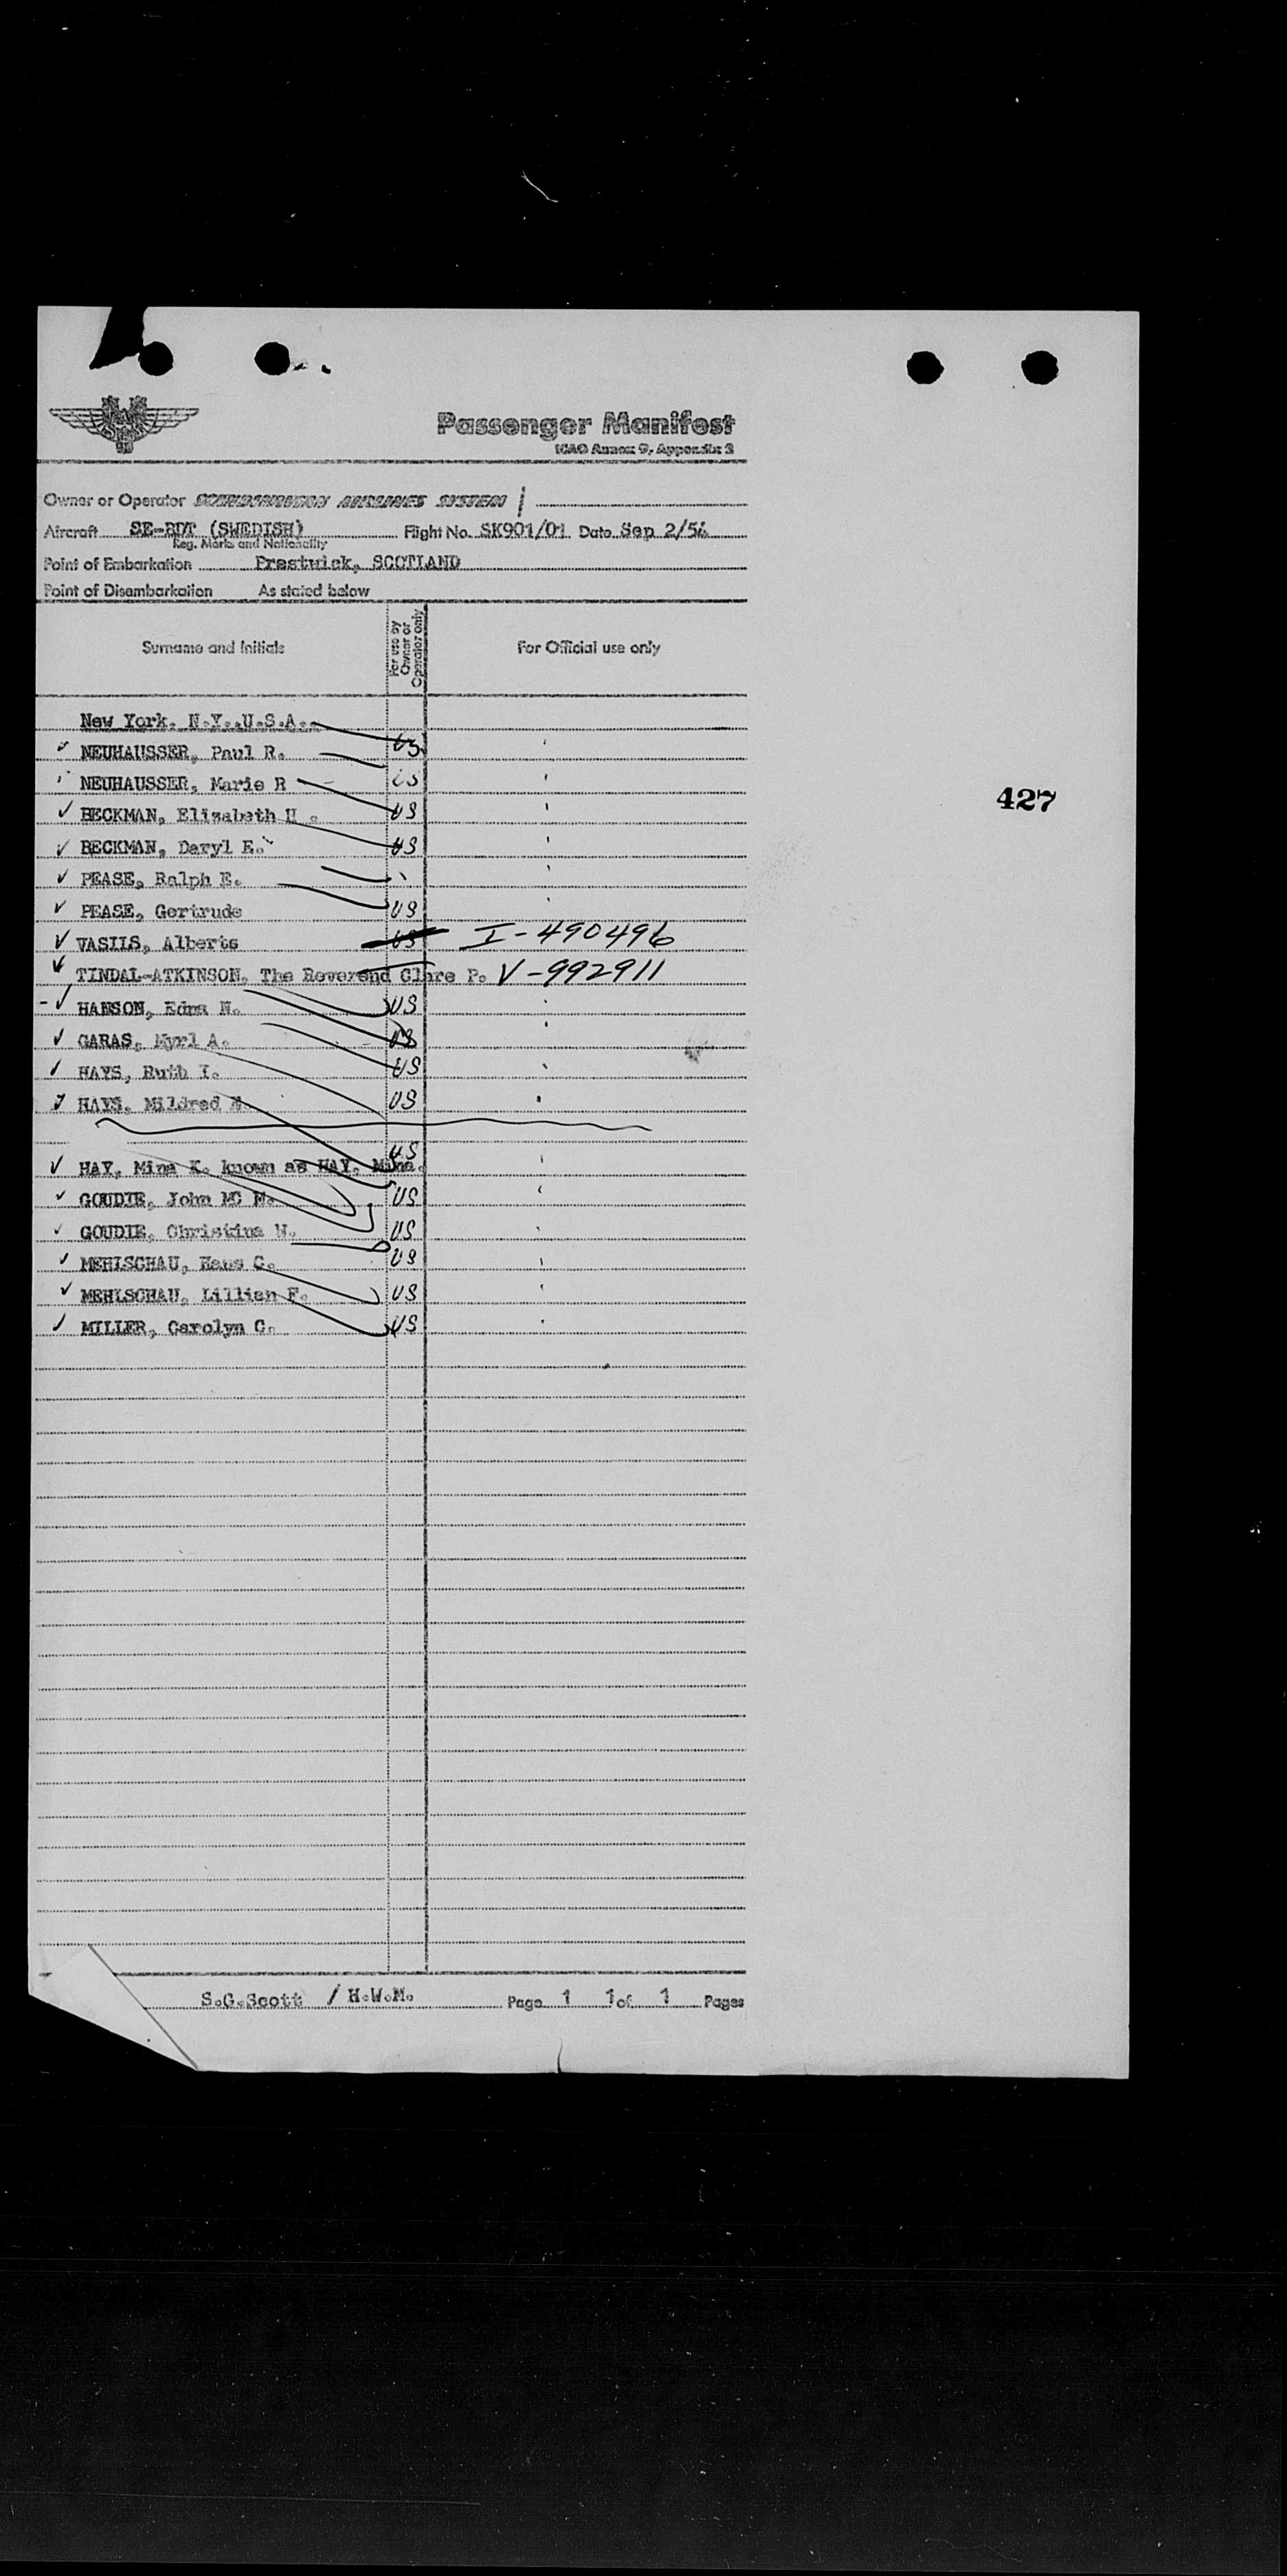 Passenger Manifest
ICAO Annex 9, Appendix 2
Owner or Operator SCANDINAVIAN AIRLINES SYSTEM
Aircraft SE-BDT (SWEDISH) Flight No. SK901/01 Date Sep 2/54
Reg. Marks and Nationality
Point of Embarkation Prestwick, SCOTLAND
Point of Disembarkation As stated below
Surname and Initials For use by Owner or Operator only For Official use only
New York. N.Y..U.S.A.
427
✓ NEUHAUSSER, Paul R. US
NEUHAUSSER, Marie R US
✓ BECKMAN, Elizabeth H. US
✓ BECKMAN, Daryl E. US
✓ PEASE, Ralph E.
✓ PEASE, Gertrude US
✓ VASIIS, Alberts US I-490496
✓ TINDAL-ATKINSON. The Reverend Clare P. V-992911
-✓ HANSON, Edna N. US
✓ GARAS, Myrl A. US
✓ HAYS, Ruth I. US
✓ HAYS. Mildred US
✓ HAY, Mina K. known as HAY. Mina. US
✓ GOUDIE, John MC M. US
✓ GOUDIE, Christina W. US
✓ MEHLSCHAU, Hans C. US
✓ MEHLSCHAU, Lillian F. US
✓ MILLER, Carolyn C. US
S.G.Scott / H.W.M. Page 1 1 of 1 Pages